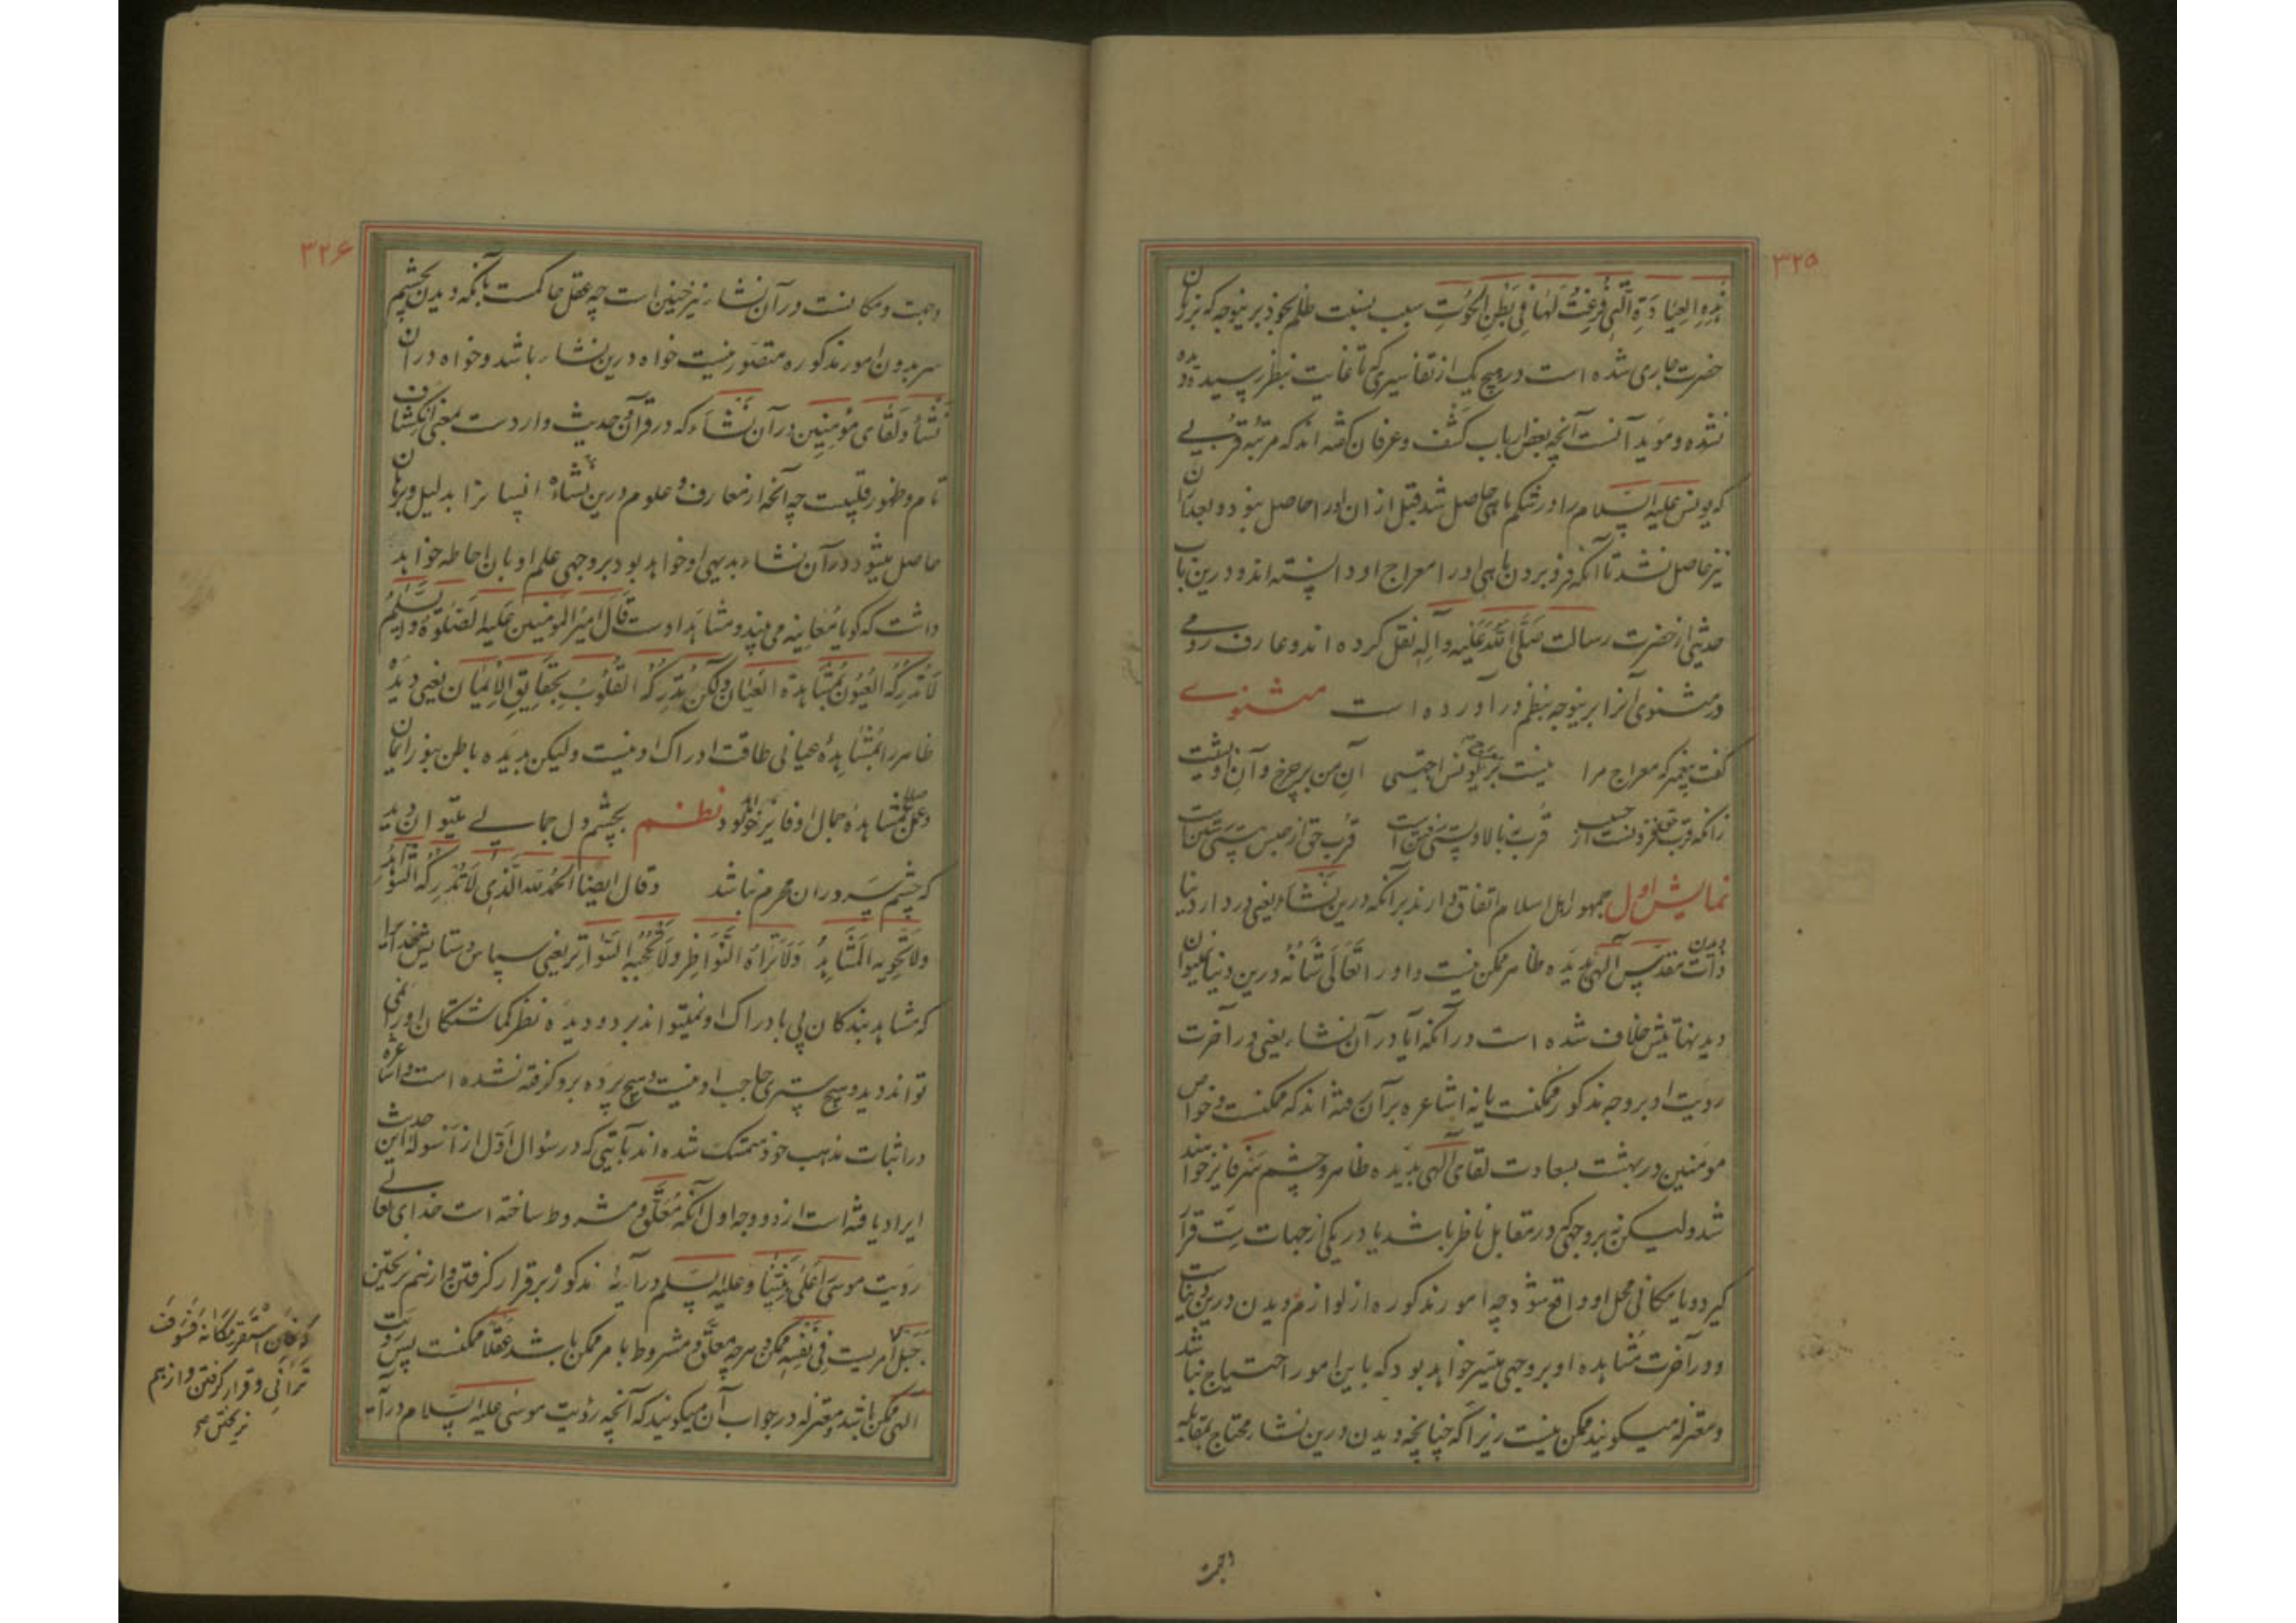 ۳۲۵
هذه العبادة التی فرغت لها فی بطن الحوت سبب نسبت ظلم بخود برینوجه که بزبان
حضرت جاری شده است در هیچ یک از تفاسیری که تا غایت بنظر رسیده
نشده و مؤید آنست آنچه بعض ارباب کشف و عرفان گفته اند که مرتبه قربی
که یونس علیه السلام را در شکم ماهی حاصل شد قبل از ان او را حاصل نبود و بعد از ان
نیز حاصل نشد تا آنکه فرو بردن ماهی او را معراج او دانسته اند و درین باب
حدیثی از حضرت رسالت صلی الله علیه وآله نقل کرده اند و عارف رومی
در مثنوی آنرا برینوجه بنظم در آورده است مثنوی
گفت پیغمبر که معراج مرا نیست بر معراج یونس اجتبی آن من بر چرخ و آن او نشیب
زانکه قرب حق برونست از حسیب قرب نه بالا و پستی رفتن است قرب حق از حبس هستی رستن است
نمایش اول جمهور اهل اسلام اتفاق دارند بر آنکه درین نشاء یعنی در دار دنیا
دیدن ذات مقدس آلهی بدیده ظاهر ممکن نیست و او را تعالی شانه درین دنیا نمیتوان
دید نهایتش خلاف شده است در آنکه آیا در آن نشاء یعنی در آخرت
رویت او بر وجه مذکور ممکنست یا نه اشاعره بر آن رفته اند که ممکنست و خواص
مؤمنین در بهشت بسعادت لقای آلهی بدیده ظاهر و چشم سر فایز خواهند
شد ولیکن نه بر وجهی که در مقابل ناظر باشد یا در یکی از جهات ستّ قرار
گیرد و یا مکانی محل او واقع شود چه امور مذکوره از لوازم دیدن درین دنیاست
و در آخرت مشاهده او بر وجهی میسر خواهد بود که باین امور احتیاج نباشد
و معتزله میگویند ممکن نیست زیرا که چنانچه دیدن درین نشاء محتاج بمقابله
وجهت
۳۲۶
وجهت و مکانست در آن نشاء نیز چنین است چه عقل حاکمست بآنکه دیدن بچشم
سر بدون امور مذکوره متصوّر نیست خواه درین نشاء باشد و خواه در ان
نشأ و لقای مؤمنین در آن نشاء که در قرآن و حدیث واردست بمعنی انکشاف
تام و ظهور قلبیست چه آنچه از معارف و علوم درین نشاه انسانرا بدلیل و برهان
حاصل میشود در آن نشاء بدیهی او خواهد بود بر وجهی علم او بان احاطه خواهد
داشت که گویا معاینه می بیند و مشاهد اوست قال امیر المؤمنین علیه الصلوة والتسلیم
لا تدرکه العیون بمشاهدة العیان ولکن تدرکه القلوب بحقایق الایمان یعنی دیده
ظاهر را بمشاهده عیانی طاقت ادراک او نیست ولیکن بدیده باطن بنور ایمان
و عمل بمشاهده جمال او فایز خواهد بود نظم بچشم دل جمالی میتوان دید
که چشم سر در ان محرم نباشد وقال ایضا الحمد لله الذی لا تدرکه الشواهد
ولا تحویه المشاهد ولا تراه النواظر ولا تحجبه السواتر یعنی سپاس و ستایش مر خدایرا
که مشاهد بندگان پی بادراک او نمیتواند برد و دیده نظر گماشتگان او را نمی
تواند دید و هیچ ستری حاجب او نیست و هیچ پرده برو گرفته نشده است و اشاعره
در اثبات مذهب خود متمسک شده اند بآیتی که در سؤال اول از اسوله این حدیث
ایراد یافته است از دو وجه اول آنکه معلّق و مشروط ساخته است خدای تعالی
رویت موسی اعلی نبینا وعلیه السلم در آیهٔ مذکوره بر قرار گرفتن و از هم ریختن
جبل امریست فی نفسه ممکن و هر چه معلّق و مشروط بامر ممکن باشد عقلا ممکنست پس رؤیت
الهی ممکن باشد و معتزله در جواب آن میگویند که آنچه رؤیت موسی علیه السلام در آیه
فان استقر مکانه فسوف
ترانی و قرار گرفتن و از هم
ریختن صح